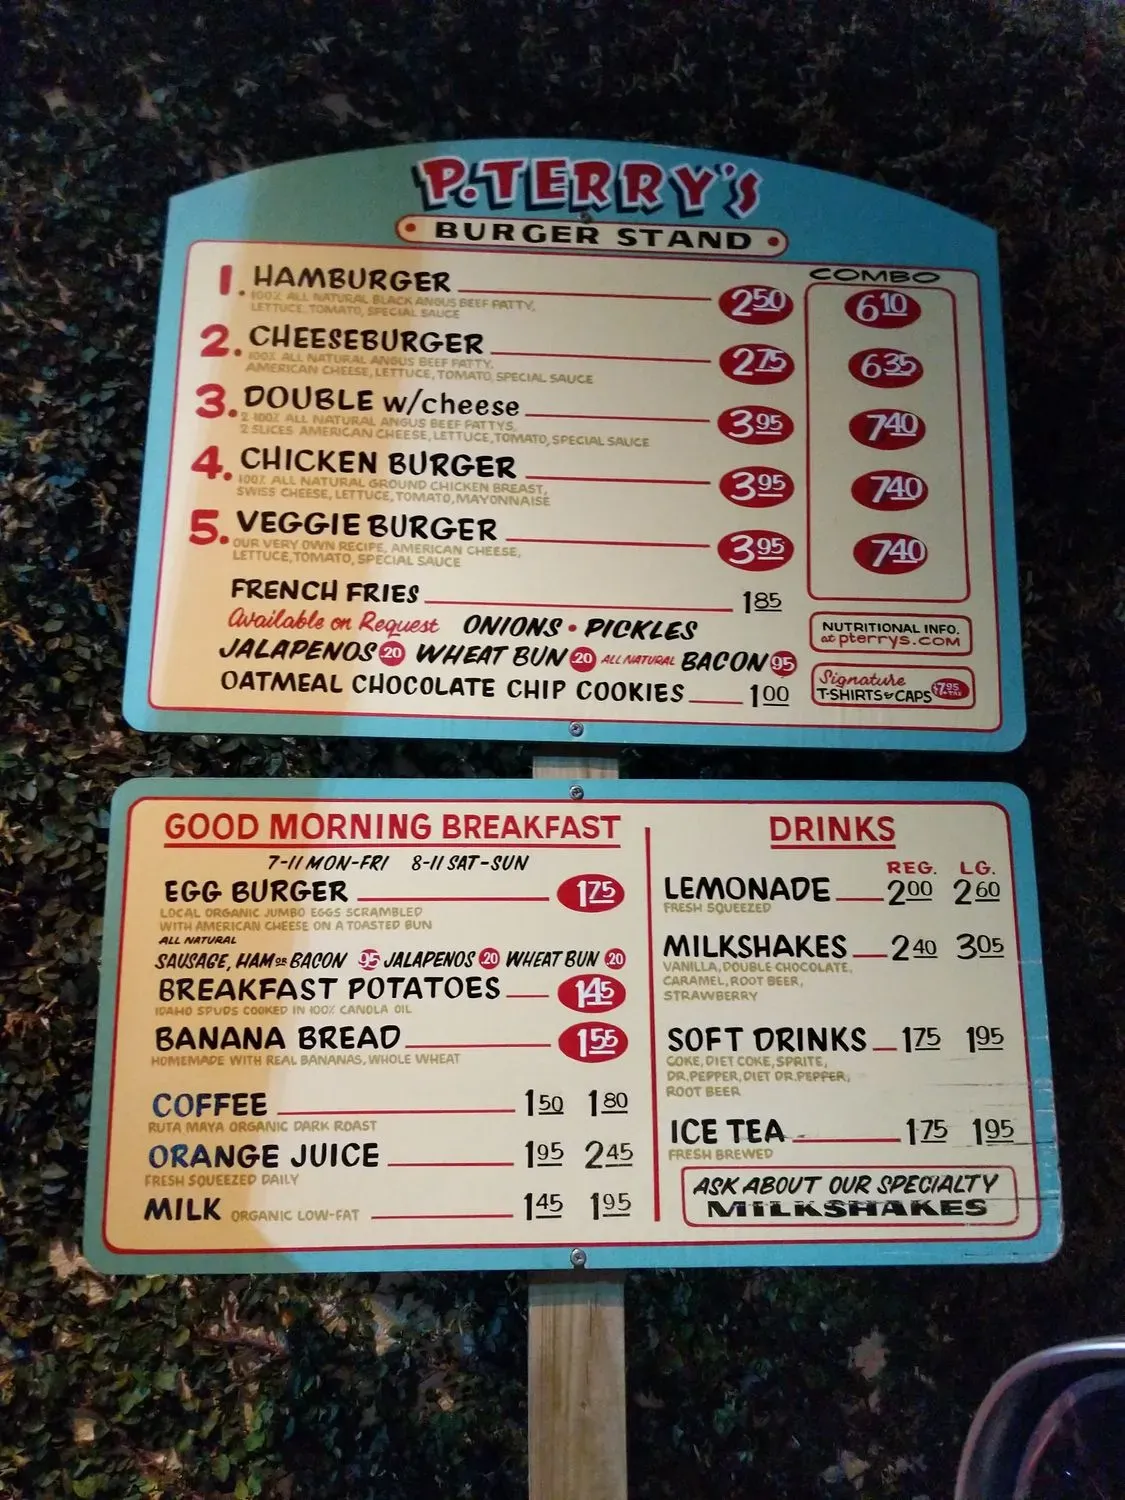 P. TERRY'S
BURGER STAND
COMBO
1. HAMBURGER 2.50 6.10
100% ALL NATURAL BLACK ANGUS BEEF PATTY,
LETTUCE, TOMATO, SPECIAL SAUCE
2. CHEESEBURGER 2.75 6.35
100% ALL NATURAL ANGUS BEEF PATTY,
AMERICAN CHEESE, LETTUCE, TOMATO, SPECIAL SAUCE
3. DOUBLE w/cheese 3.95 7.40
2 100% ALL NATURAL ANGUS BEEF PATTYS,
2 SLICES AMERICAN CHEESE, LETTUCE, TOMATO, SPECIAL SAUCE
4. CHICKEN BURGER 3.95 7.40
100% ALL NATURAL GROUND CHICKEN BREAST,
SWISS CHEESE, LETTUCE, TOMATO, MAYONNAISE
5. VEGGIE BURGER 3.95 7.40
OUR VERY OWN RECIPE, AMERICAN CHEESE,
LETTUCE, TOMATO, SPECIAL SAUCE
FRENCH FRIES 1.85
Available on Request ONIONS • PICKLES
JALAPENOS .20 WHEAT BUN .20 ALL NATURAL BACON .95
OATMEAL CHOCOLATE CHIP COOKIES 1.00
NUTRITIONAL INFO.
at pterrys.com
Signature
T-SHIRTS & CAPS $7.95 + TAX
GOOD MORNING BREAKFAST
7-11 MON-FRI 8-11 SAT-SUN
EGG BURGER 1.75
LOCAL ORGANIC JUMBO EGGS SCRAMBLED
WITH AMERICAN CHEESE ON A TOASTED BUN
ALL NATURAL
SAUSAGE, HAM OR BACON .95 JALAPENOS .20 WHEAT BUN .20
BREAKFAST POTATOES 1.45
IDAHO SPUDS COOKED IN 100% CANOLA OIL
BANANA BREAD 1.55
HOMEMADE WITH REAL BANANAS, WHOLE WHEAT
COFFEE 1.50 1.80
RUTA MAYA ORGANIC DARK ROAST
ORANGE JUICE 1.95 2.45
FRESH SQUEEZED DAILY
MILK ORGANIC LOW-FAT 1.45 1.95
DRINKS
REG. LG.
LEMONADE 2.00 2.60
FRESH SQUEEZED
MILKSHAKES 2.40 3.05
VANILLA, DOUBLE CHOCOLATE,
CARAMEL, ROOT BEER,
STRAWBERRY
SOFT DRINKS 1.75 1.95
COKE, DIET COKE, SPRITE,
DR. PEPPER, DIET DR. PEPPER,
ROOT BEER
ICE TEA 1.75 1.95
FRESH BREWED
ASK ABOUT OUR SPECIALTY
MILKSHAKES